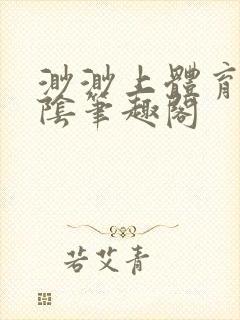 渺渺上體育
陰筆趣閣
若艾青